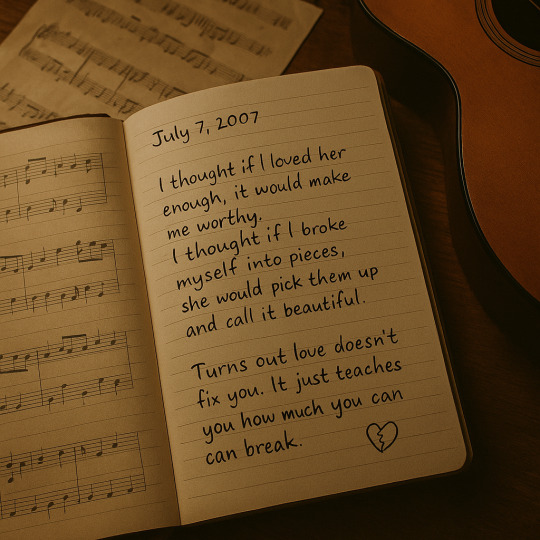 July 7, 2007
I thought if I loved her
enough, it would make
me worthy.
I thought if I broke
myself into pieces,
she would pick them up
and call it beautiful.
Turns out love doesn't
fix you. It just teaches
you how much you can
can break.